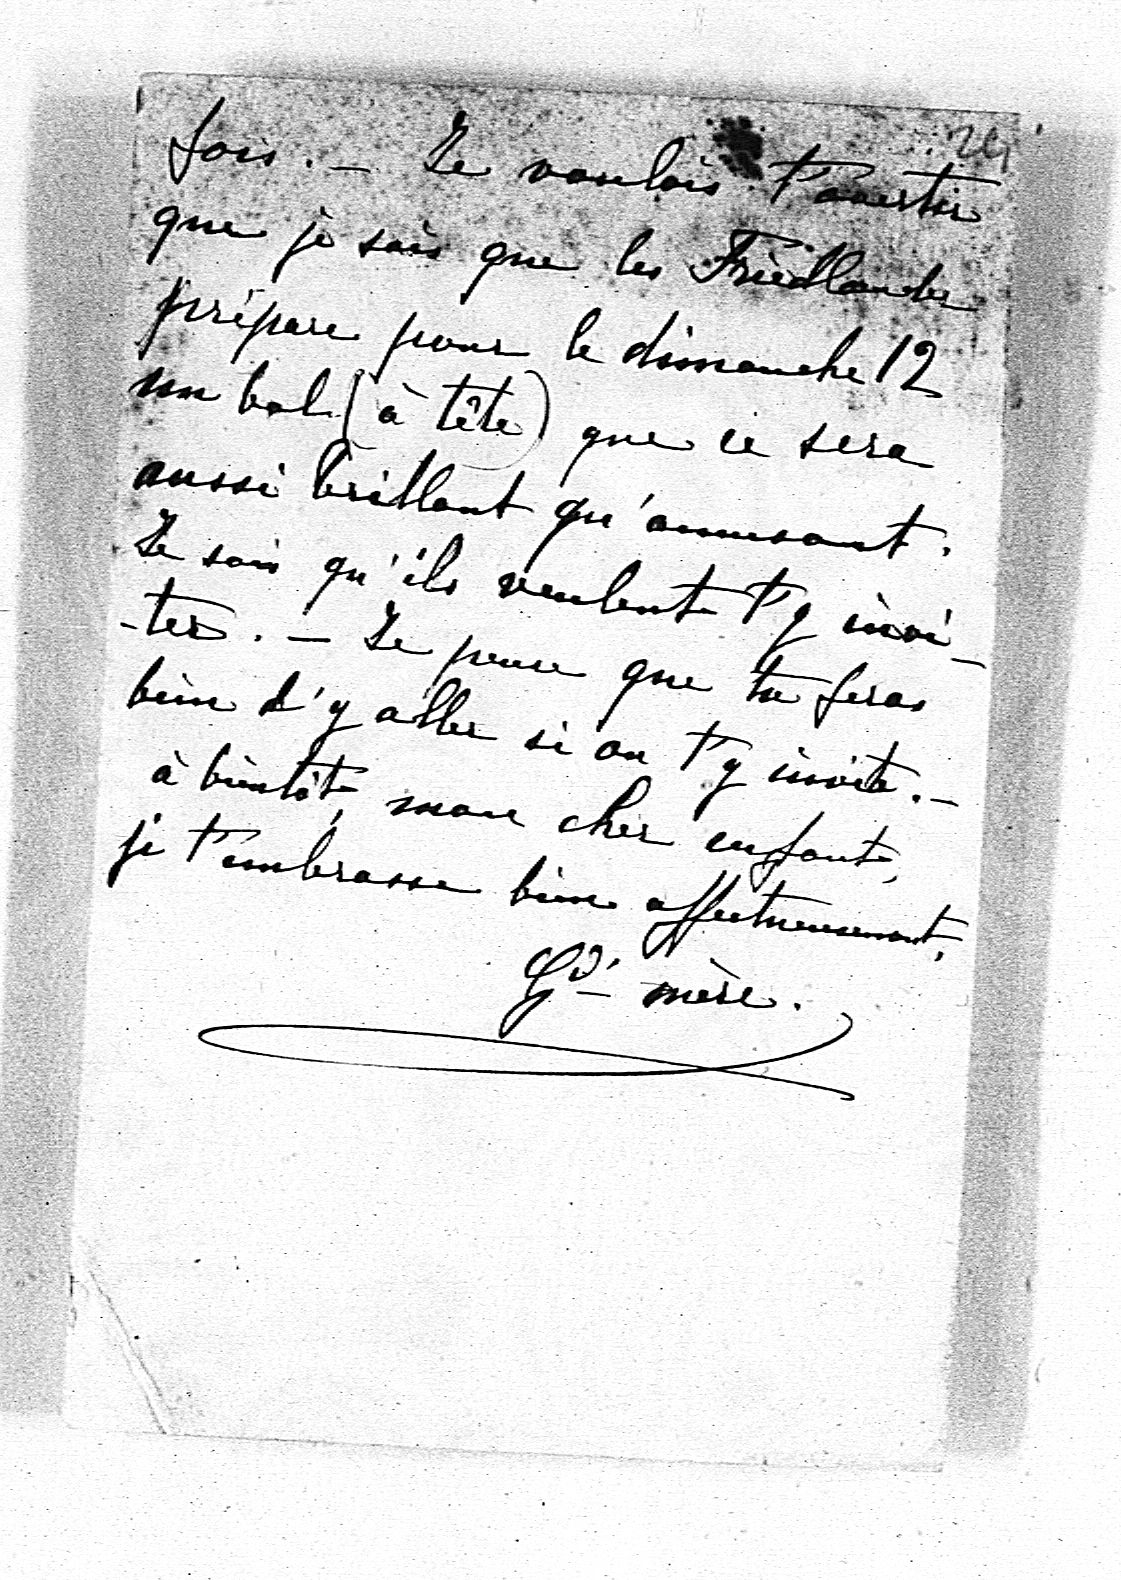 24
fois. — Je voulais t'avertir
que je sais que les Friedlander
prépare pour le dimanche 12
un bal (à tête) que ce sera
aussi brillant qu'amusant.
Je sais qu'ils veulent t'y invi-
-ter. — Je pense que tu feras
bien d'y aller si on t'y invite. —
à bientôt, mon cher enfant,
je t'embrasse bien affectueusement,
Gd- mère.